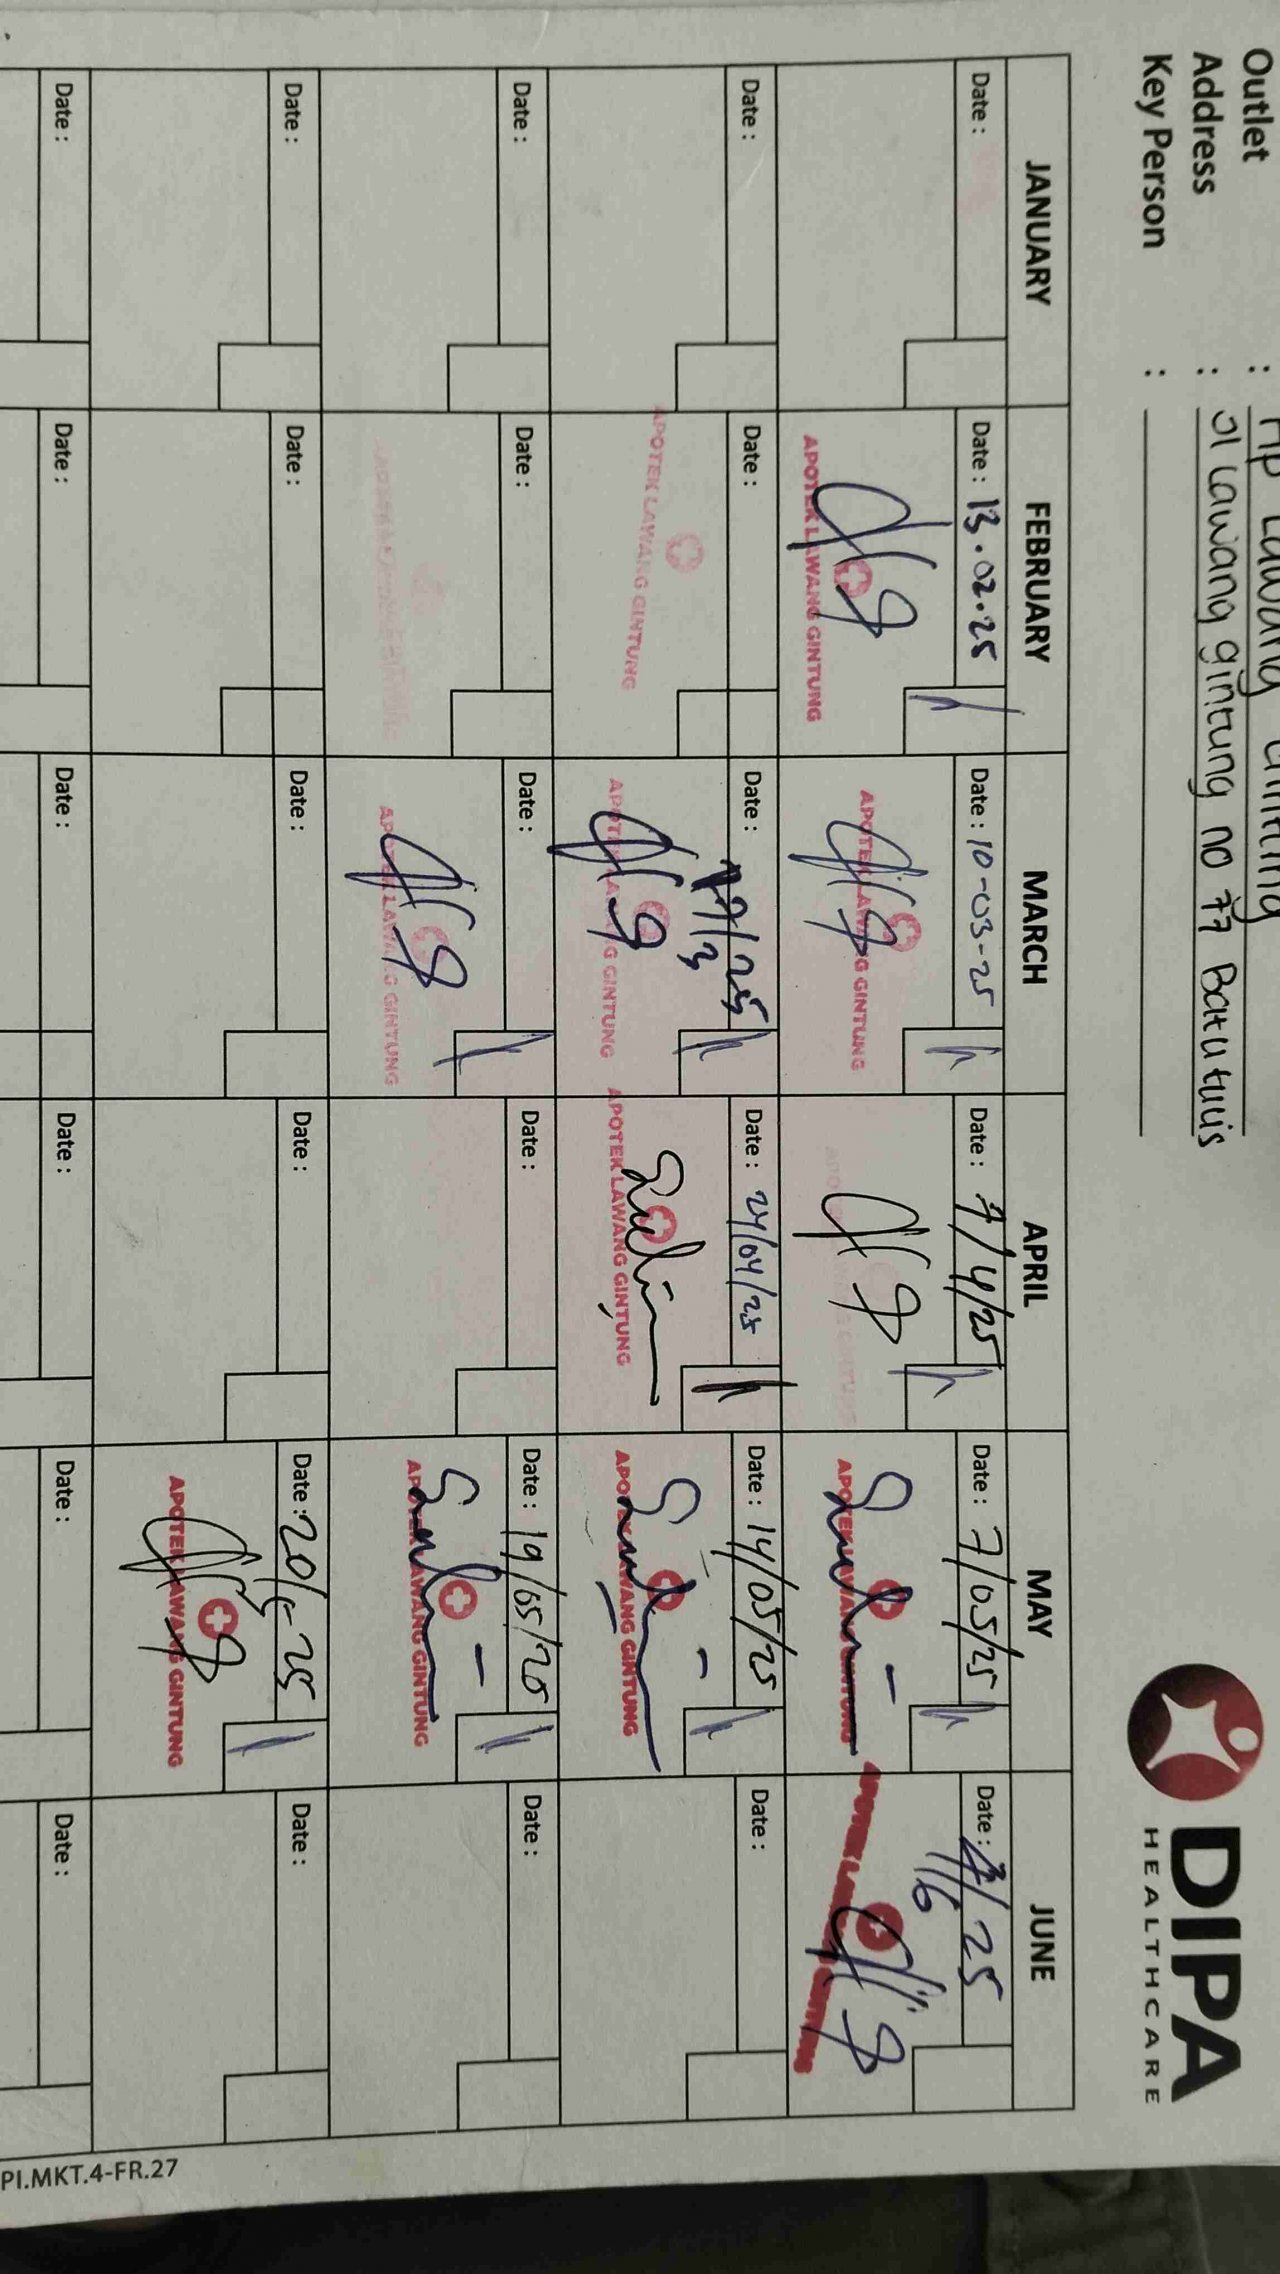 Outlet : AP Lawang Gintung
Address : Jl Lawang gintung no 77 Batutulis
Key Person :
DIPA
HEALTHCARE
JANUARY FEBRUARY MARCH APRIL MAY JUNE
Date : Date : 13.02.25 Date : 10-03-25 Date : 7/4/25 Date : 7/05/25 Date : /25
/6
APOTEK LAWANG GINTUNG APOTEK LAWANG GINTUNG APOTEK LAWANG GINTUNG APOTEK LAWANG GINTUNG
Date : Date : Date : 17/25 Date : 24/04/25 Date : 14/05/25 Date :
3
APOTEK LAWANG GINTUNG APOTEK LAWANG GINTUNG APOTEK LAWANG GINTUNG APOTEK LAWANG GINTUNG
Date : Date : Date : Date : Date : 19/05/25 Date :
APOTEK LAWANG GINTUNG APOTEK LAWANG GINTUNG
Date : Date : Date : Date : Date : 20/5-25 Date :
APOTEK LAWANG GINTUNG
Date : Date : Date : Date : Date : Date :
PI.MKT.4-FR.27